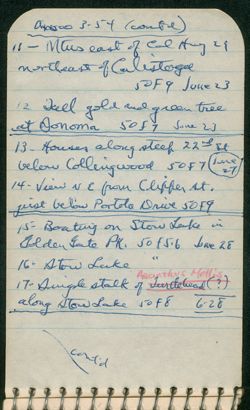 Ansco 3-54 (cont'd)
11- Mtns east of Cal Hwy 29
northeast of Calistoga
50 F9 June 23
12 Tall gold and green tree
at Sonoma 50 F7 June 23
13- Houses along steep 22nd St
below Collingwood 50 F7 (June 27)
14- View N E from Clipper St.
just below Portola Drive 50 F9
15- Boating on Stow Lake in
Golden Gate Pk. 50 F5.6 June 28
16- Stow Lake "
Acanthus Mollis
17- Single stalk of Turtlehead (?)
along Stow Lake 50 F8 6-28
(cont'd